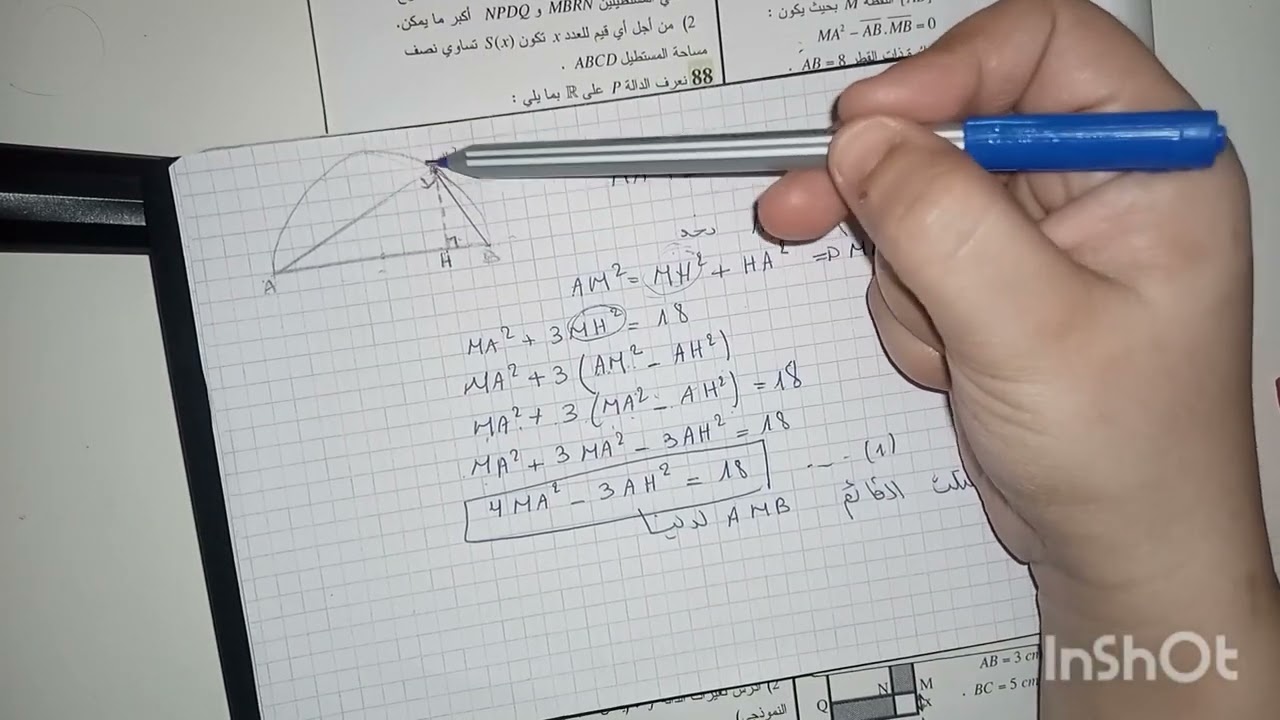 MBRN و NPDQ أكبر ما يمكن.
2) من أجل أي قيم للعدد x تكون S(x) تساوي نصف
مساحة المستطيل ABCD .
88 نعرف الدالة P على ℝ بما يلي :
M بحيث يكون :
MA² − AB.MB = 0
القطر AB = 8 .
A
H
نجد
AM² = MH² + HA² =>
MA² + 3MH² = 18
MA² + 3 (AM² − AH²)
MA² + 3 (MA² − AH²) = 18
MA² + 3MA² − 3AH² = 18
4MA² − 3AH² = 18 .... (1)
القائم AMB لدينا
AB = 3 cm
BC = 5 cm .
N
M
Q
x
النموذجي)
InShOt